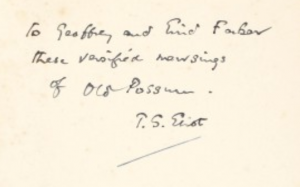 To Geoffrey and Enid Faber
these versified mewsings
of Old Possum.
T. S. Eliot